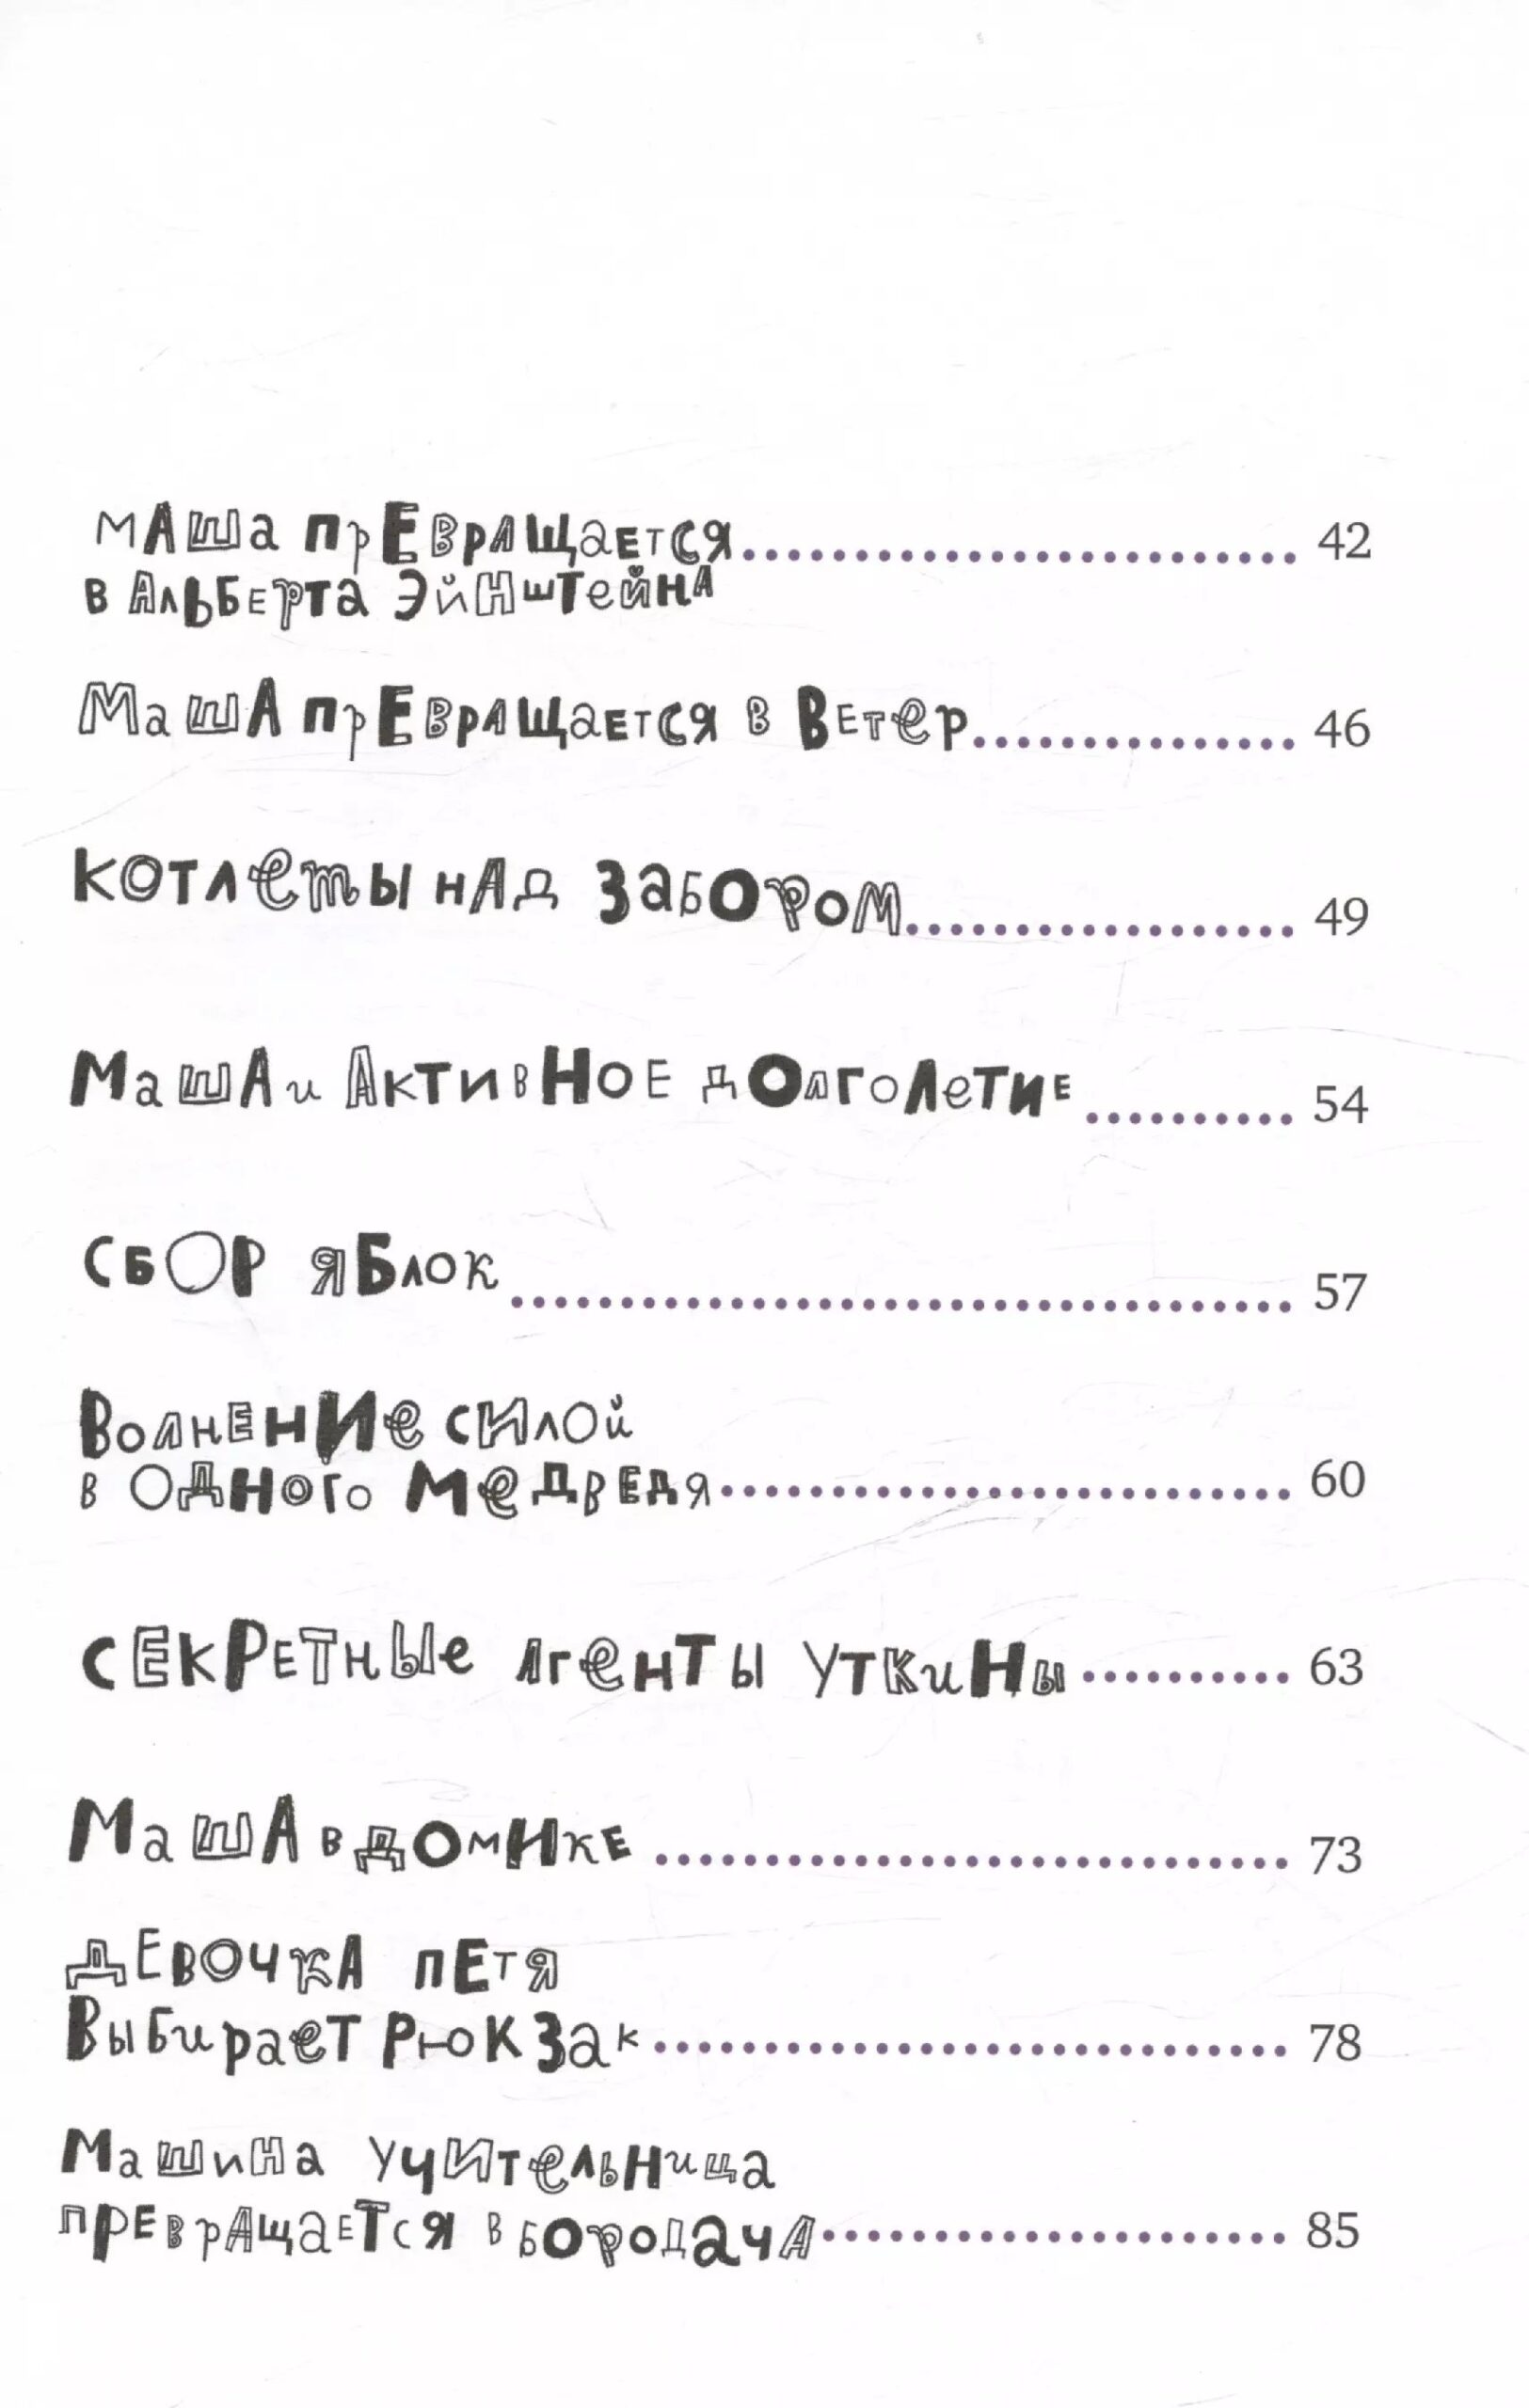 Маша превращается.......................... 42
в Альберта Эйнштейна
Маша превращается в ветер............... 46
Котлеты над забором.................. 49
Маша и активное долголетие.......... 54
Сбор яблок.................................... 57
Волнение силой
в одного медведя.......................... 60
Секретные агенты Уткины.......... 63
Маша в домике............................. 73
Девочка Петя
выбирает рюкзак............................. 78
Машина учительница
превращается в бородача..................... 85